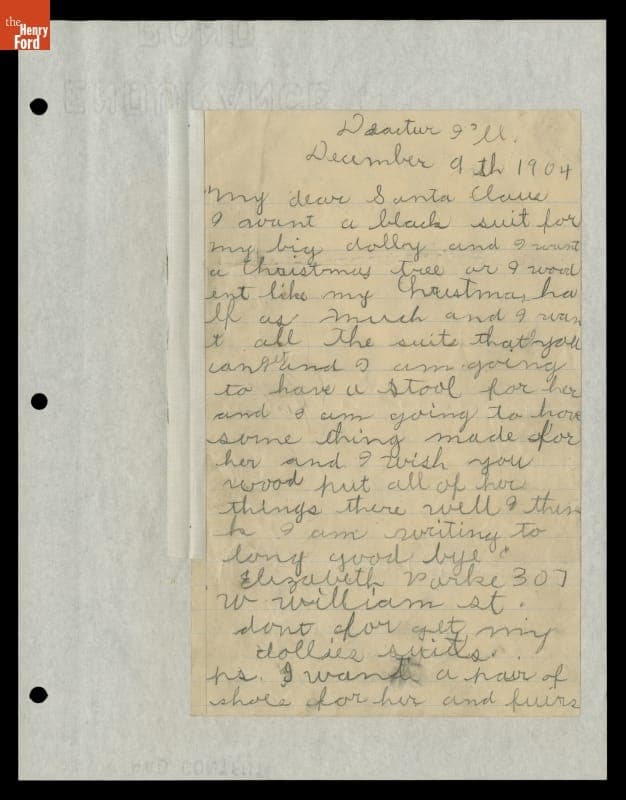 the
Henry
Ford
Deactur Ill.
December 9th 1904
My dear Santa Claus
I want a black suit for
my big dolly and I want
a Christmas tree or I wood
ent like my Christmas ha
lf as much and I wan
t all the suits that you
can get and I am going
to have a stool for her
and I am going to have
some thing made for
her and I wish you
wood put all of her
things there well I thin
k I am writing to
long good bye
Elizabeth Parke 307
W william st.
dont for get my
dollies suits.
ps. I want a pair of
shoes for her and fuirs